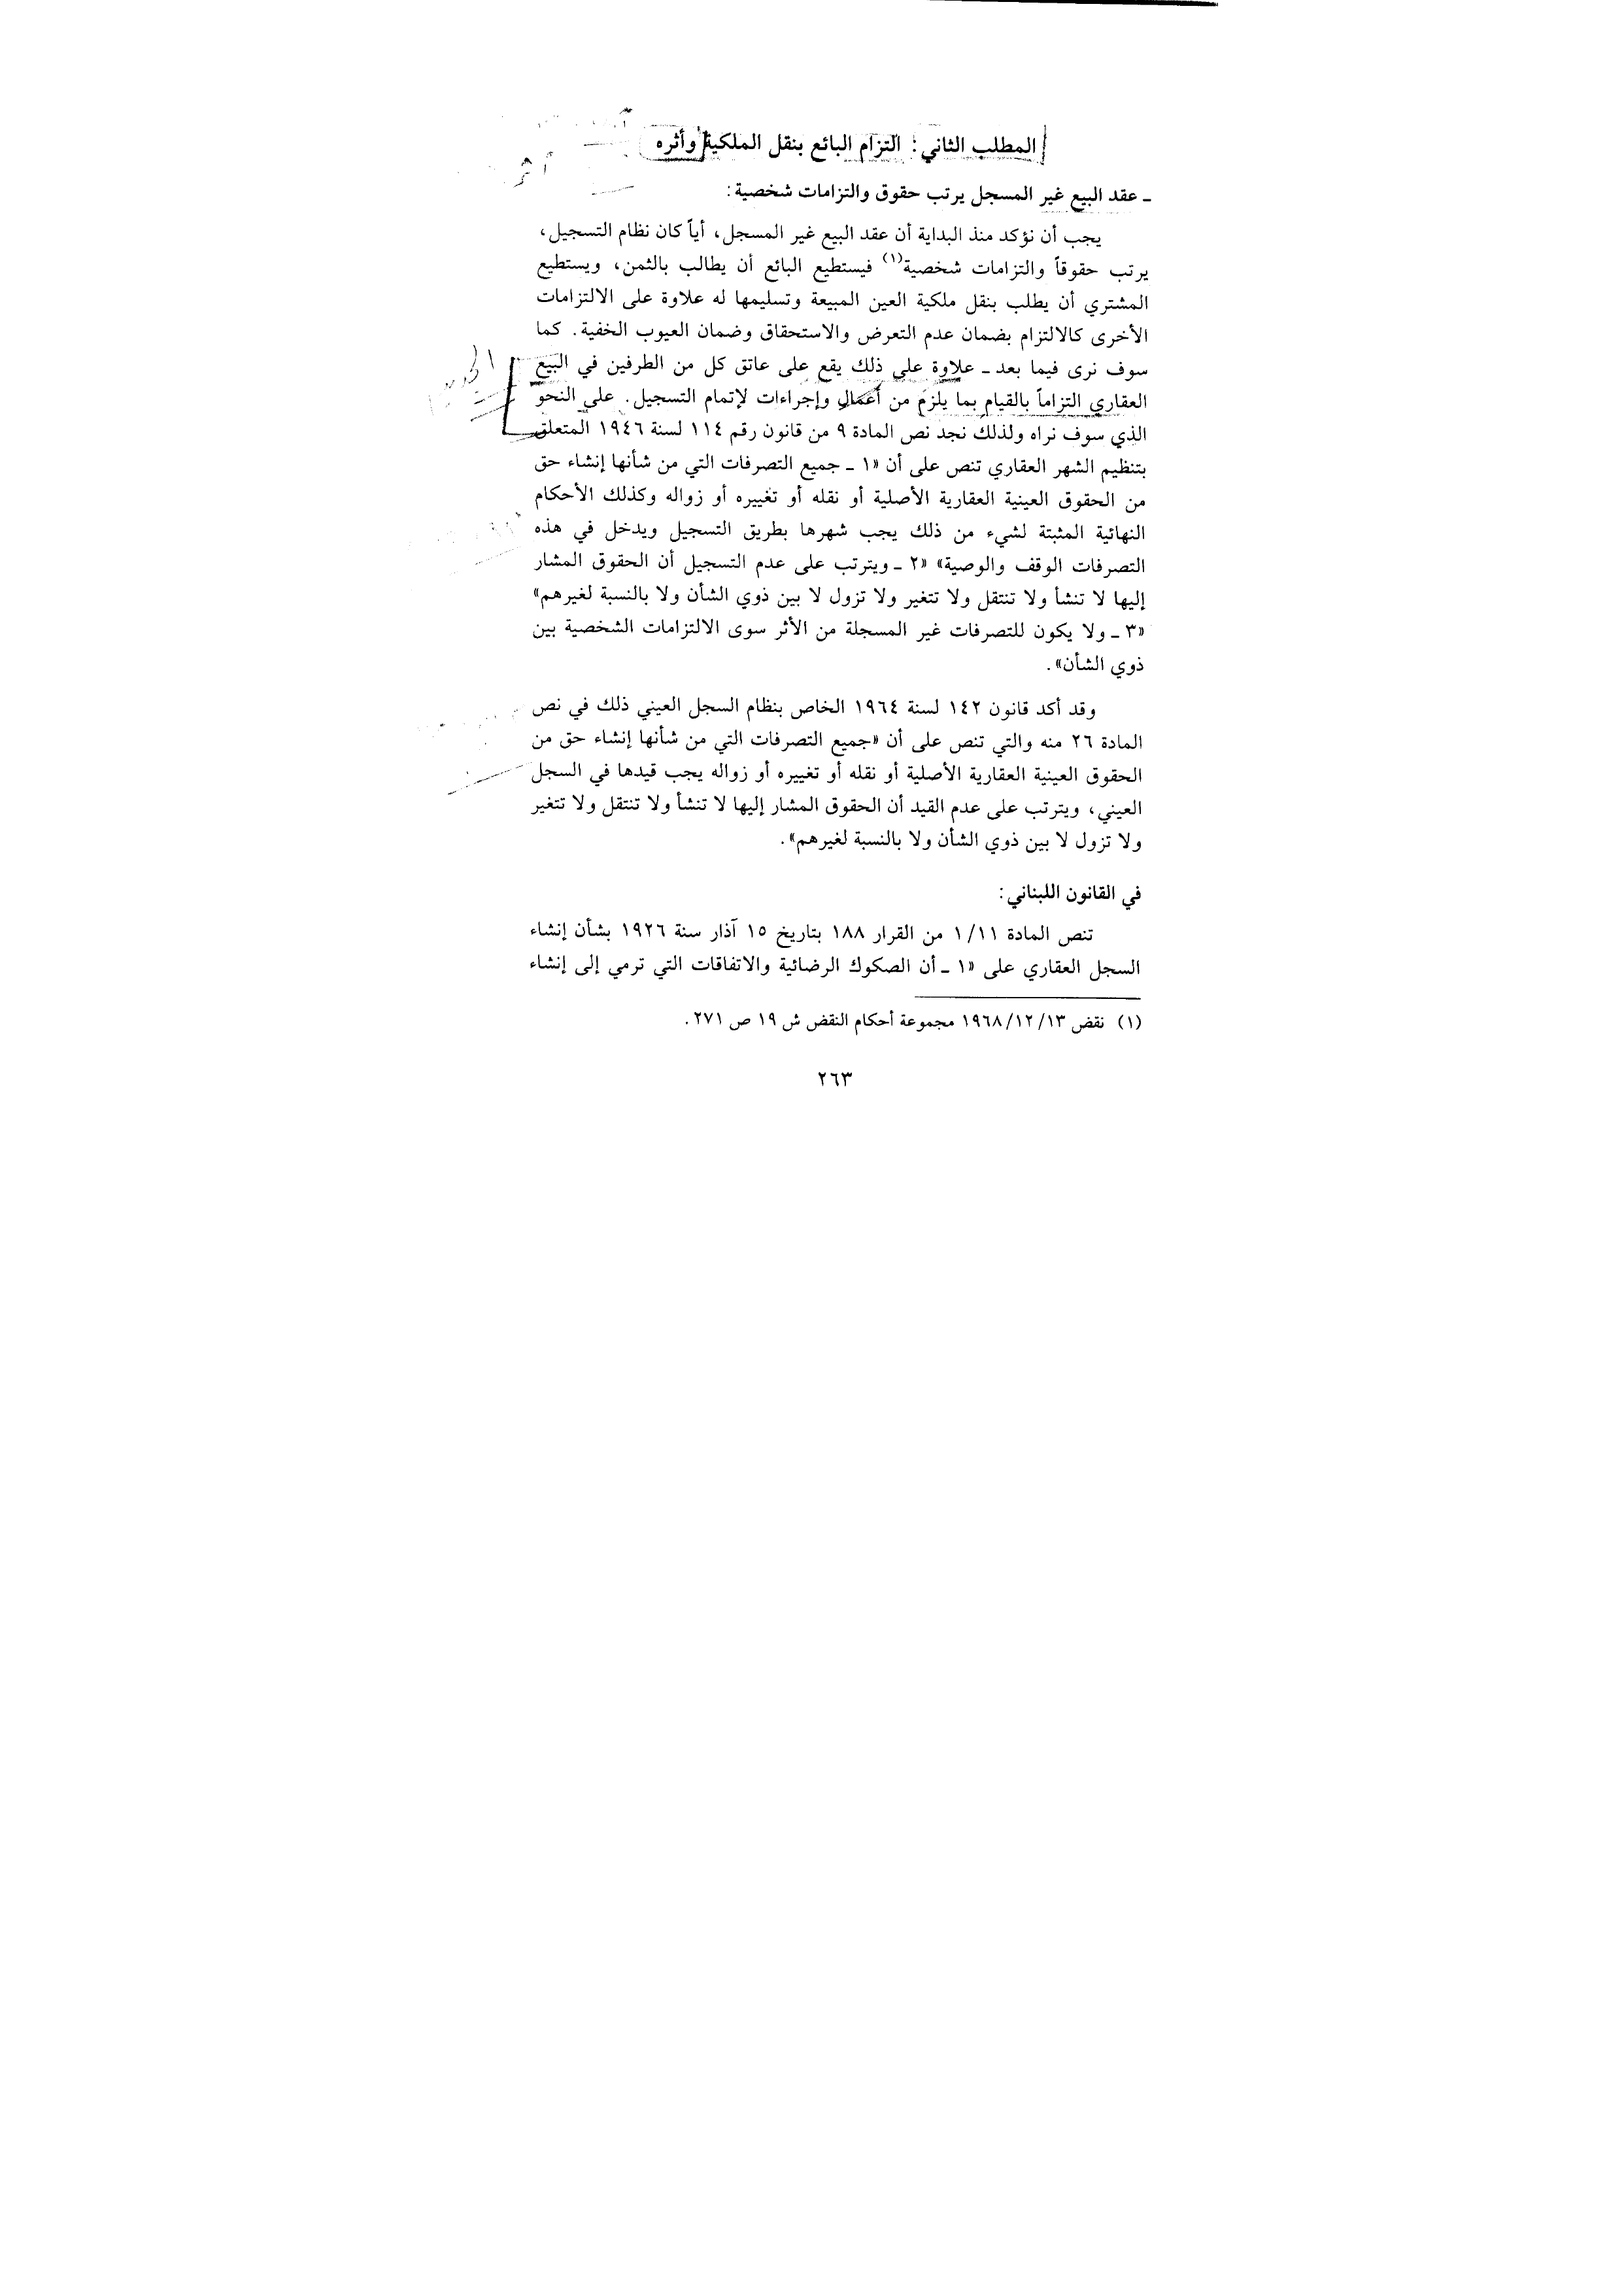 المطلب الثاني: التزام البائع بنقل الملكية وأثره
ـ عقد البيع غير المسجل يرتب حقوق والتزامات شخصية:
يجب أن نؤكد منذ البداية أن عقد البيع غير المسجل، أياً كان نظام التسجيل،
يرتب حقوقاً والتزامات شخصية(١) فيستطيع البائع أن يطالب بالثمن، ويستطيع
المشتري أن يطلب بنقل ملكية العين المبيعة وتسليمها له علاوة على الالتزامات
الأخرى كالالتزام بضمان عدم التعرض والاستحقاق وضمان العيوب الخفية. كما
سوف نرى فيما بعد ـ علاوة على ذلك يقع على عاتق كل من الطرفين في البيع
العقاري التزاماً بالقيام بما يلزم من أعمال وإجراءات لإتمام التسجيل. على النحو
الذي سوف نراه ولذلك نجد نص المادة ٩ من قانون رقم ١١٤ لسنة ١٩٤٦ المتعلق
بتنظيم الشهر العقاري تنص على أن «١ ـ جميع التصرفات التي من شأنها إنشاء حق
من الحقوق العينية العقارية الأصلية أو نقله أو تغييره أو زواله وكذلك الأحكام
النهائية المثبتة لشيء من ذلك يجب شهرها بطريق التسجيل ويدخل في هذه
التصرفات الوقف والوصية» «٢ ـ ويترتب على عدم التسجيل أن الحقوق المشار
إليها لا تنشأ ولا تنتقل ولا تتغير ولا تزول لا بين ذوي الشأن ولا بالنسبة لغيرهم»
«٣ ـ ولا يكون للتصرفات غير المسجلة من الأثر سوى الالتزامات الشخصية بين
ذوي الشأن».
وقد أكد قانون ١٤٢ لسنة ١٩٦٤ الخاص بنظام السجل العيني ذلك في نص
المادة ٢٦ منه والتي تنص على أن «جميع التصرفات التي من شأنها إنشاء حق من
الحقوق العينية العقارية الأصلية أو نقله أو تغييره أو زواله يجب قيدها في السجل
العيني، ويترتب على عدم القيد أن الحقوق المشار إليها لا تنشأ ولا تنتقل ولا تتغير
ولا تزول لا بين ذوي الشأن ولا بالنسبة لغيرهم».
في القانون اللبناني:
تنص المادة ١/١١ من القرار ١٨٨ بتاريخ ١٥ آذار سنة ١٩٢٦ بشأن إنشاء
السجل العقاري على «١ ـ أن الصكوك الرضائية والاتفاقات التي ترمي إلى إنشاء
(١) نقض ١٩٦٨/١٢/١٣ مجموعة أحكام النقض ش ١٩ ص ٢٧١.
٢٦٣